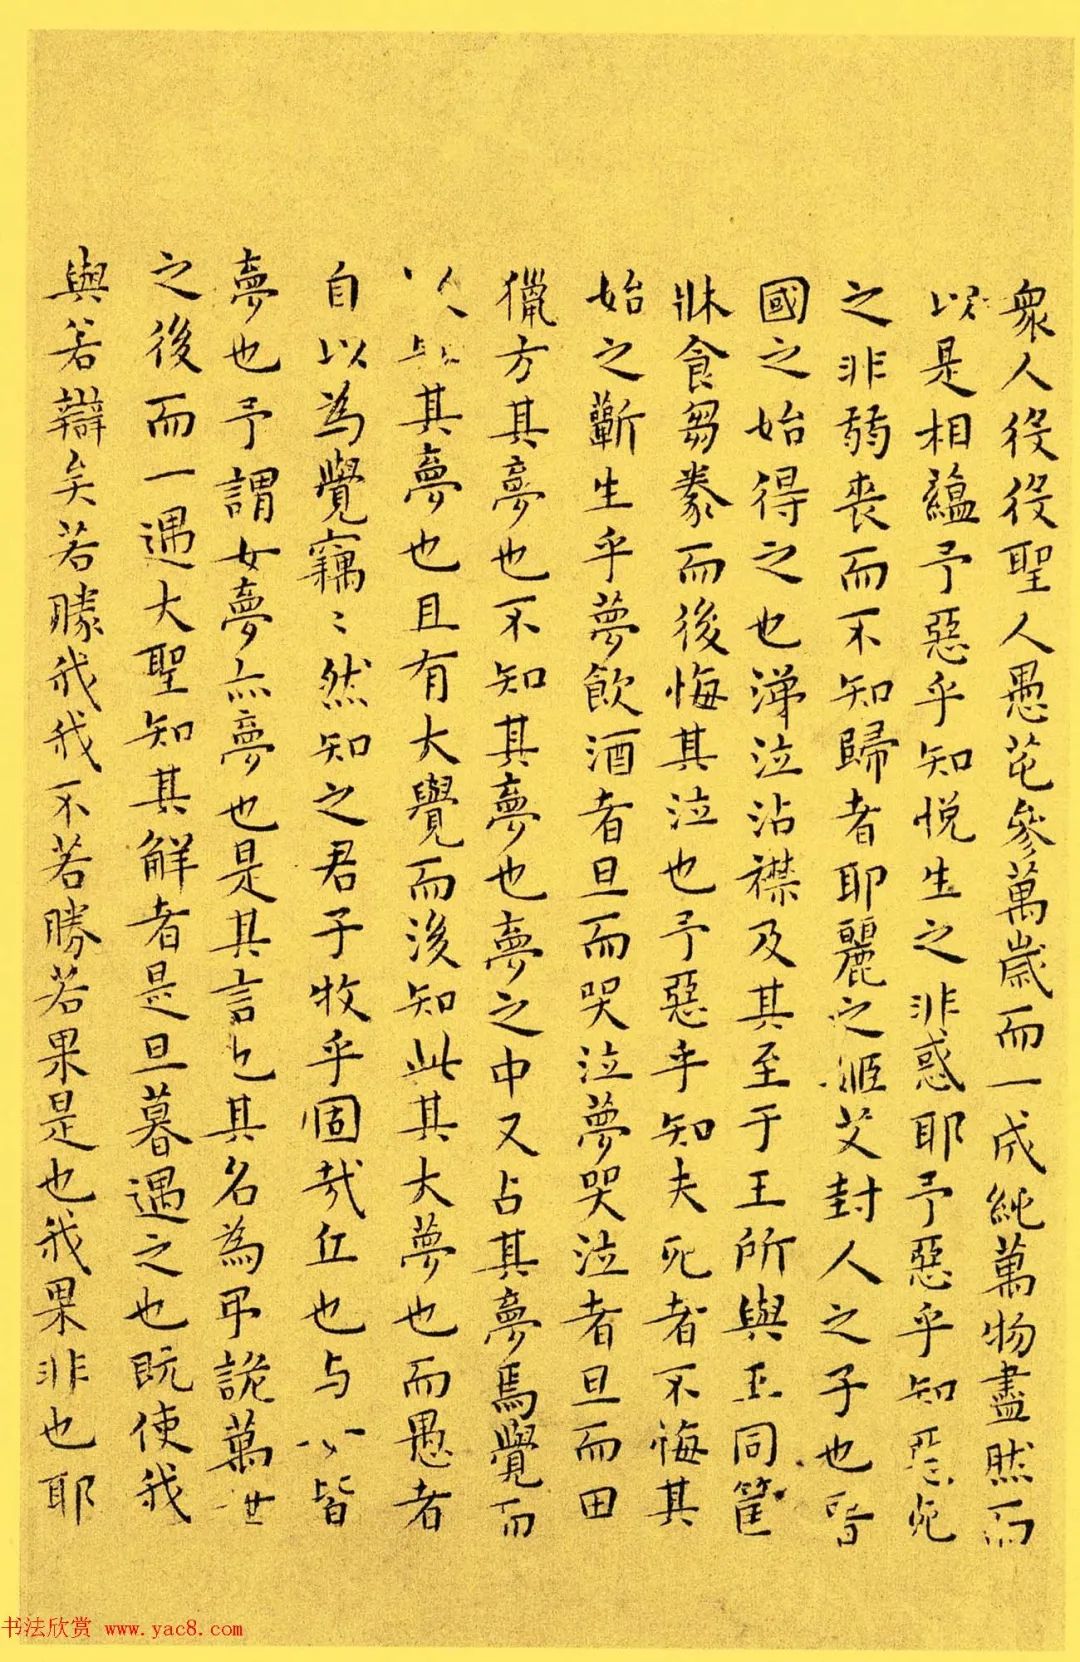 眾人役役聖人愚芚參萬歲而一成純萬物盡然而
以是相蘊予惡乎知悅生之非惑耶予惡乎知惡死
之非弱喪而不知歸者耶麗之姬艾封人之子也晉
國之始得之也涕泣沾襟及其至于王所與王同筐
牀食芻豢而後悔其泣也予惡乎知夫死者不悔其
始之蘄生乎夢飲酒者旦而哭泣夢哭泣者旦而田
獵方其夢也不知其夢也夢之中又占其夢焉覺而
以此其夢也且有大覺而後知此其大夢也而愚者
自以為覺竊〻然知之君子牧乎固哉丘也与 皆
夢也予謂女夢亦夢也是其言也其名為弔詭萬世
之後而一遇大聖知其解者是旦暮遇之也既使我
與若辯矣若勝我我不若勝若果是也我果非也耶
书法欣赏 www.yac8.com